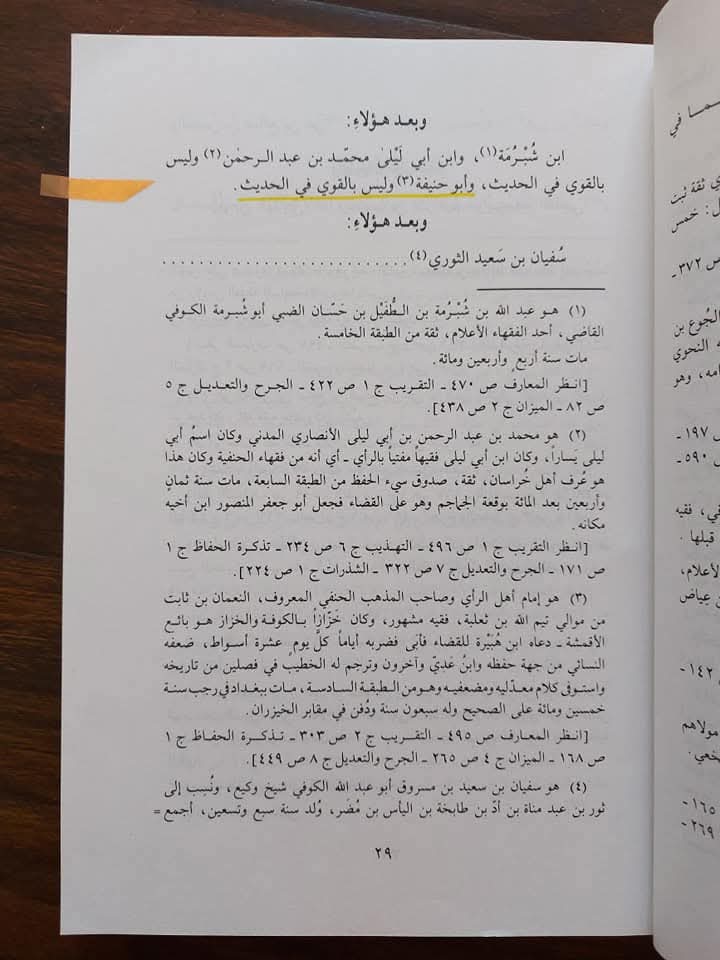 وبعد هؤلاءِ:
ابن شُبْرُمَة(١)، وابن أبي لَيْلىٰ محمّد بن عبد الرحمٰن(٢) وليس
بالقوي في الحديث، وأبو حنيفة(٣) وليس بالقوي في الحديث.
وبعد هؤلاءِ:
سُفيان بن سَعيد الثوري(٤)..........................
(١) هو عبد الله بن شُبْرُمة بن الطُّفَيْل بن حَسَّان الضبي أبو شُبرمة الكوفي
القاضي، أحد الفقهاء الأعلام، ثقة من الطبقة الخامسة.
مات سنة أربعٍ وأربعين ومائة.
[انظر المعارف ص ٤٧٠ ـ التقريب ج ١ ص ٤٢٢ ـ الجرح والتعديل ج ٥
ص ٨٢ ـ الميزان ج ٢ ص ٤٣٨].
(٢) هو محمد بن عبد الرحمن بن أبي ليلى الأنصاري المدني وكان اسمُ أبي
ليلى يَساراً، وكان ابن أبي ليلى فقيهاً مفتياً بالرأي ـ أي أنه من فقهاء الحنفية وكان هذا
هو عُرف أهل خُراسان، ثقة، صدوق سيء الحفظ من الطبقة السابعة، مات سنة ثمانٍ
وأربعين بعد المائة بوقعة الجماجم وهو على القضاء فجعل أبو جعفر المنصور ابن اخيه
مكانه.
[انظر التقريب ج ١ ص ٤٩٦ ـ التهذيب ج ٦ ص ٢٣٤ ـ تذكرة الحفاظ ج ١
ص ١٧١ ـ الجرح والتعديل ج ٧ ص ٣٢٢ ـ الشذرات ج ١ ص ٢٢٤].
(٣) هو إمام أهل الرأي وصاحب المذهب الحنفي المعروف، النعمان بن ثابت
من موالي تيم الله بن ثعلبة، فقيه مشهور، وكان خَزَّازاً بالكوفة والخزاز هو بائع
الأقمشة ـ دعاه ابن هُبَيْرة للقضاء فأبَى فضربه أياماً كلَّ يومٍ عشرة أسواط، ضعفه
النسائي من جهة حفظه وابنُ عَدِيّ وآخرون وترجم له الخطيب في فصلين من تاريخه
واستوفى كلام معدّليه ومضعفيه وهو من الطبقة السادسة، مات ببغداد في رجب سنة
خمسين ومائة على الصحيح وله سبعون سنة ودُفن في مقابر الخيزران.
[انظر المعارف ص ٤٩٥ ـ التقريب ج ٢ ص ٣٠٣ ـ تذكرة الحفاظ ج ١
ص ١٦٨ ـ الميزان ج ٤ ص ٢٦٥ ـ الجرح والتعديل ج ٨ ص ٤٤٩].
(٤) هو سفيان بن سعيد بن مسروق أبو عبد الله الكوفي شيخ وكيع، ونُسِب إلى
ثور بن عبد مناة بن أدّ بن طابخة بن اليأس بن مُضَر، وُلد سنة سبع وتسعين، أجمع =
٢٩